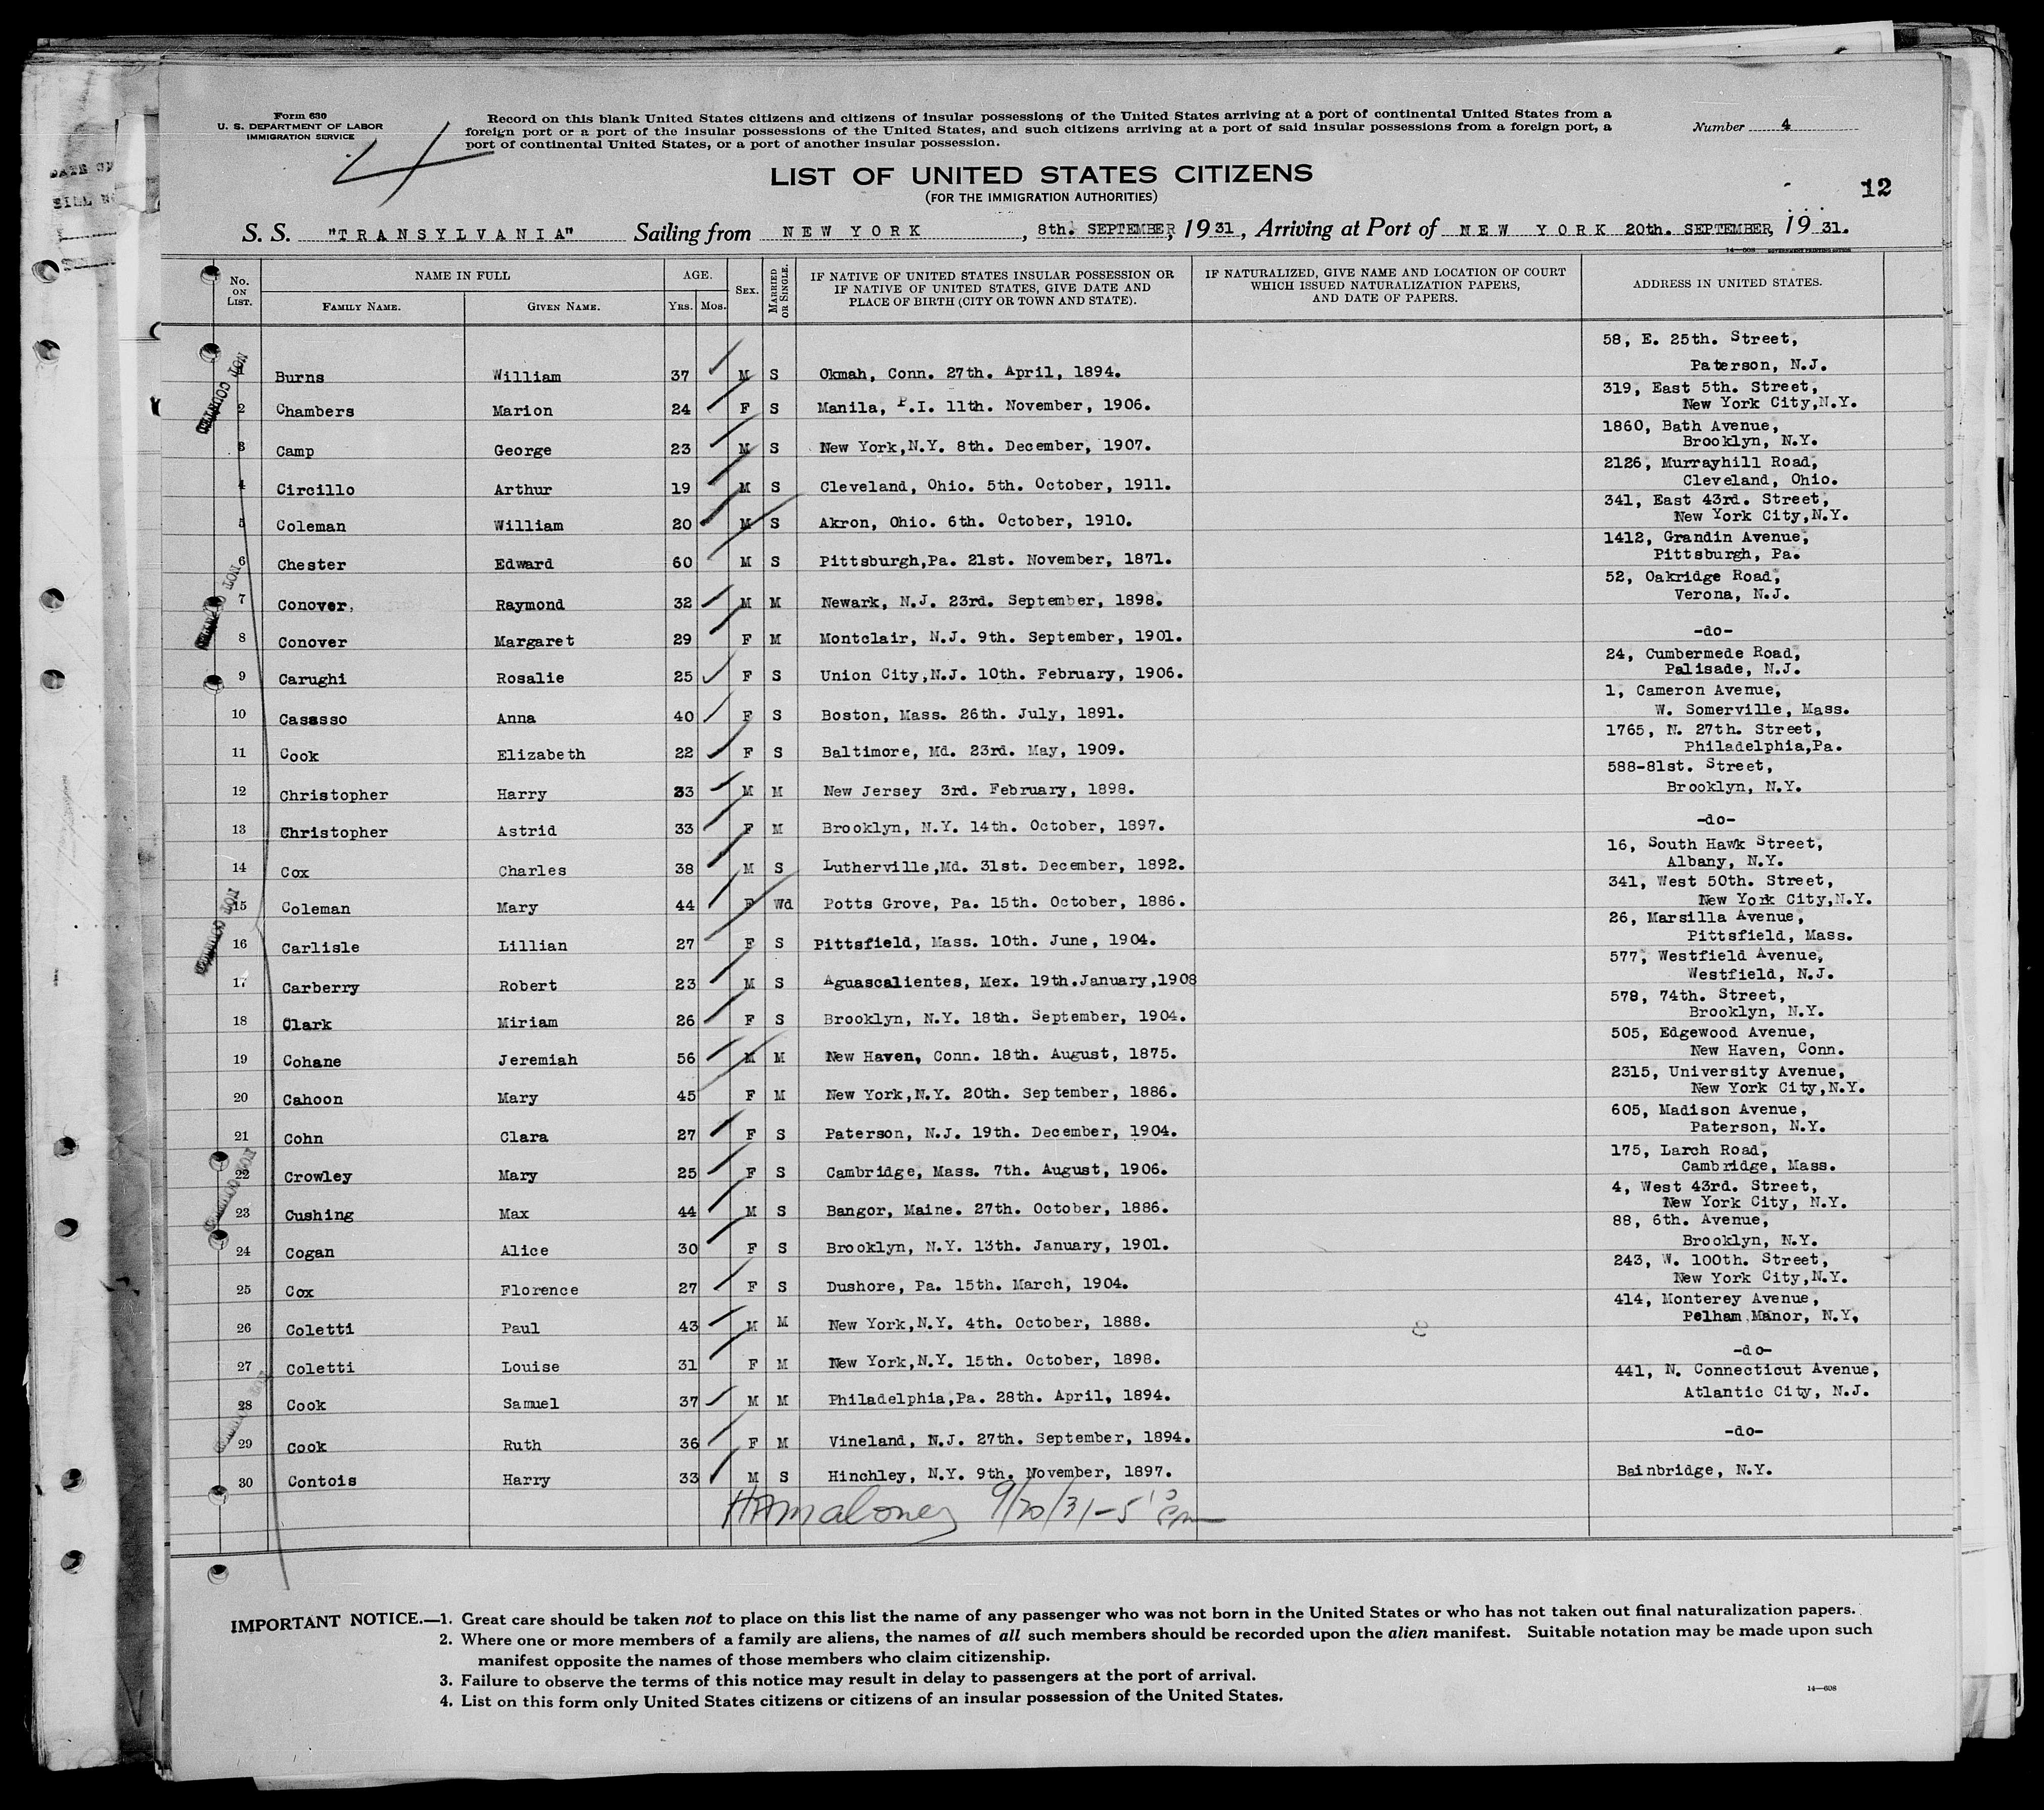 Form 630
U. S. DEPARTMENT OF LABOR
IMMIGRATION SERVICE
4
Record on this blank United States citizens and citizens of insular possessions of the United States arriving at a port of continental United States from a
foreign port or a port of the insular possessions of the United States, and such citizens arriving at a port of said insular possessions from a foreign port, a
port of continental United States, or a port of another insular possession.
Number 4
LIST OF UNITED STATES CITIZENS
(FOR THE IMMIGRATION AUTHORITIES)
12
S. S. "TRANSYLVANIA" Sailing from NEW YORK, 8th. SEPTEMBER, 1931, Arriving at Port of NEW YORK 20th. SEPTEMBER, 1931.
No. ON LIST. NAME IN FULL FAMILY NAME. GIVEN NAME. AGE. YRS. MOS. SEX. MARRIED OR SINGLE. IF NATIVE OF UNITED STATES INSULAR POSSESSION OR IF NATIVE OF UNITED STATES, GIVE DATE AND PLACE OF BIRTH (CITY OR TOWN AND STATE). IF NATURALIZED, GIVE NAME AND LOCATION OF COURT WHICH ISSUED NATURALIZATION PAPERS, AND DATE OF PAPERS. ADDRESS IN UNITED STATES.
Burns William 37 M S Okmah, Conn. 27th. April, 1894. 58, E. 25th. Street, Paterson, N.J.
2 Chambers Marion 24 F S Manila, P.I. 11th. November, 1906. 319, East 5th. Street, New York City,N.Y.
3 Camp George 23 M S New York,N.Y. 8th. December, 1907. 1860, Bath Avenue, Brooklyn, N.Y.
4 Circillo Arthur 19 M S Cleveland, Ohio. 5th. October, 1911. 2126, Murrayhill Road, Cleveland, Ohio.
5 Coleman William 20 M S Akron, Ohio. 6th. October, 1910. 341, East 43rd. Street, New York City,N.Y.
6 Chester Edward 60 M S Pittsburgh,Pa. 21st. November, 1871. 1412, Grandin Avenue, Pittsburgh, Pa.
7 Conover, Raymond 32 M M Newark, N.J. 23rd. September, 1898. 52, Oakridge Road, Verona, N.J.
8 Conover Margaret 29 F M Montclair, N.J. 9th. September, 1901. -do-
9 Carughi Rosalie 25 F S Union City,N.J. 10th. February, 1906. 24, Cumbermede Road, Palisade, N.J.
10 Casasso Anna 40 F S Boston, Mass. 26th. July, 1891. 1, Cameron Avenue, W. Somerville, Mass.
11 Cook Elizabeth 22 F S Baltimore, Md. 23rd. May, 1909. 1765, N. 27th. Street, Philadelphia,Pa.
12 Christopher Harry 33 M M New Jersey 3rd. February, 1898. 588-81st. Street, Brooklyn, N.Y.
13 Christopher Astrid 33 F M Brooklyn, N.Y. 14th. October, 1897. -do-
14 Cox Charles 38 M S Lutherville,Md. 31st. December, 1892. 16, South Hawk Street, Albany, N.Y.
15 Coleman Mary 44 F Wd Potts Grove, Pa. 15th. October, 1886. 341, West 50th. Street, New York City,N.Y.
16 Carlisle Lillian 27 F S Pittsfield, Mass. 10th. June, 1904. 26, Marsilla Avenue, Pittsfield, Mass.
17 Carberry Robert 23 M S Aguascalientes, Mex. 19th.January,1908 577, Westfield Avenue, Westfield, N.J.
18 Clark Miriam 26 F S Brooklyn, N.Y. 18th. September, 1904. 578, 74th. Street, Brooklyn, N.Y.
19 Cohane Jeremiah 56 M M New Haven, Conn. 18th. August, 1875. 505, Edgewood Avenue, New Haven, Conn.
20 Cahoon Mary 45 F M New York,N.Y. 20th. September, 1886. 2315, University Avenue, New York City,N.Y.
21 Cohn Clara 27 F S Paterson, N.J. 19th. December, 1904. 605, Madison Avenue, Paterson, N.Y.
22 Crowley Mary 25 F S Cambridge, Mass. 7th. August, 1906. 175, Larch Road, Cambridge, Mass.
23 Cushing Max 44 M S Bangor, Maine. 27th. October, 1886. 4, West 43rd. Street, New York City, N.Y.
24 Cogan Alice 30 F S Brooklyn, N.Y. 13th. January, 1901. 88, 6th. Avenue, Brooklyn, N.Y.
25 Cox Florence 27 F S Dushore, Pa. 15th. March, 1904. 243, W. 100th. Street, New York City,N.Y.
26 Coletti Paul 43 M M New York,N.Y. 4th. October, 1888. 414, Monterey Avenue, Pelham Manor, N.Y.
27 Coletti Louise 31 F M New York,N.Y. 15th. October, 1898. -do-
28 Cook Samuel 37 M M Philadelphia,Pa. 28th. April, 1894. 441, N. Connecticut Avenue, Atlantic City, N.J.
29 Cook Ruth 36 F M Vineland, N.J. 27th. September, 1894. -do-
30 Contois Harry 33 M S Hinchley, N.Y. 9th. November, 1897. Bainbridge, N.Y.
Maloney 9/20/31-5
IMPORTANT NOTICE.—1. Great care should be taken not to place on this list the name of any passenger who was not born in the United States or who has not taken out final naturalization papers.
2. Where one or more members of a family are aliens, the names of all such members should be recorded upon the alien manifest. Suitable notation may be made upon such
manifest opposite the names of those members who claim citizenship.
3. Failure to observe the terms of this notice may result in delay to passengers at the port of arrival.
4. List on this form only United States citizens or citizens of an insular possession of the United States.
14—608